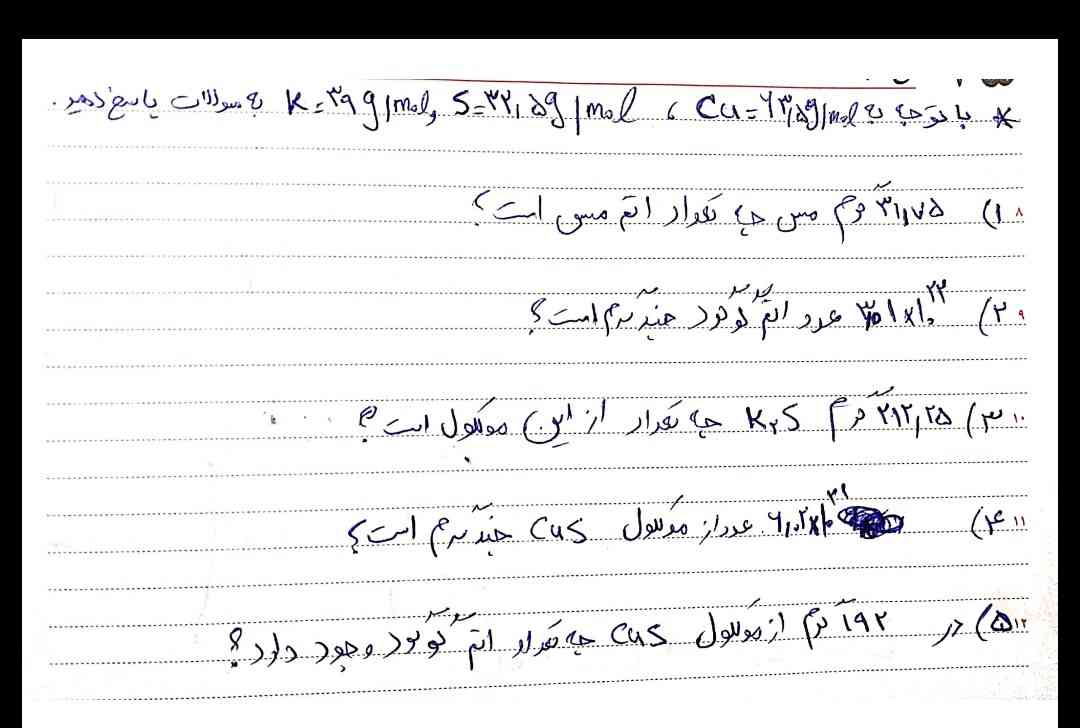 * با توجه به Cu=۶۳,۵g/mol ، S=۳۲,۵g/mol و K=۳۹g/mol به سوالات پاسخ دهید.
۸ ۱) ۳۱,۷۵ گرم مس چه تعداد اتم مس است؟
۹ ۲) ۳,۰۱×۱۰^۲۳ عدد اتم گوگرد چند گرم است؟
۱۰ ۳) ۲۱۲,۲۵ گرم K₂S چه تعداد از این مولکول است؟
۱۱ ۴) ۶,۰۲×۱۰^۲۱ عدد از مولکول CuS چند گرم است؟
۱۲ ۵) در ۱۹۲ گرم از مولکول CuS چه تعداد اتم گوگرد وجود دارد؟